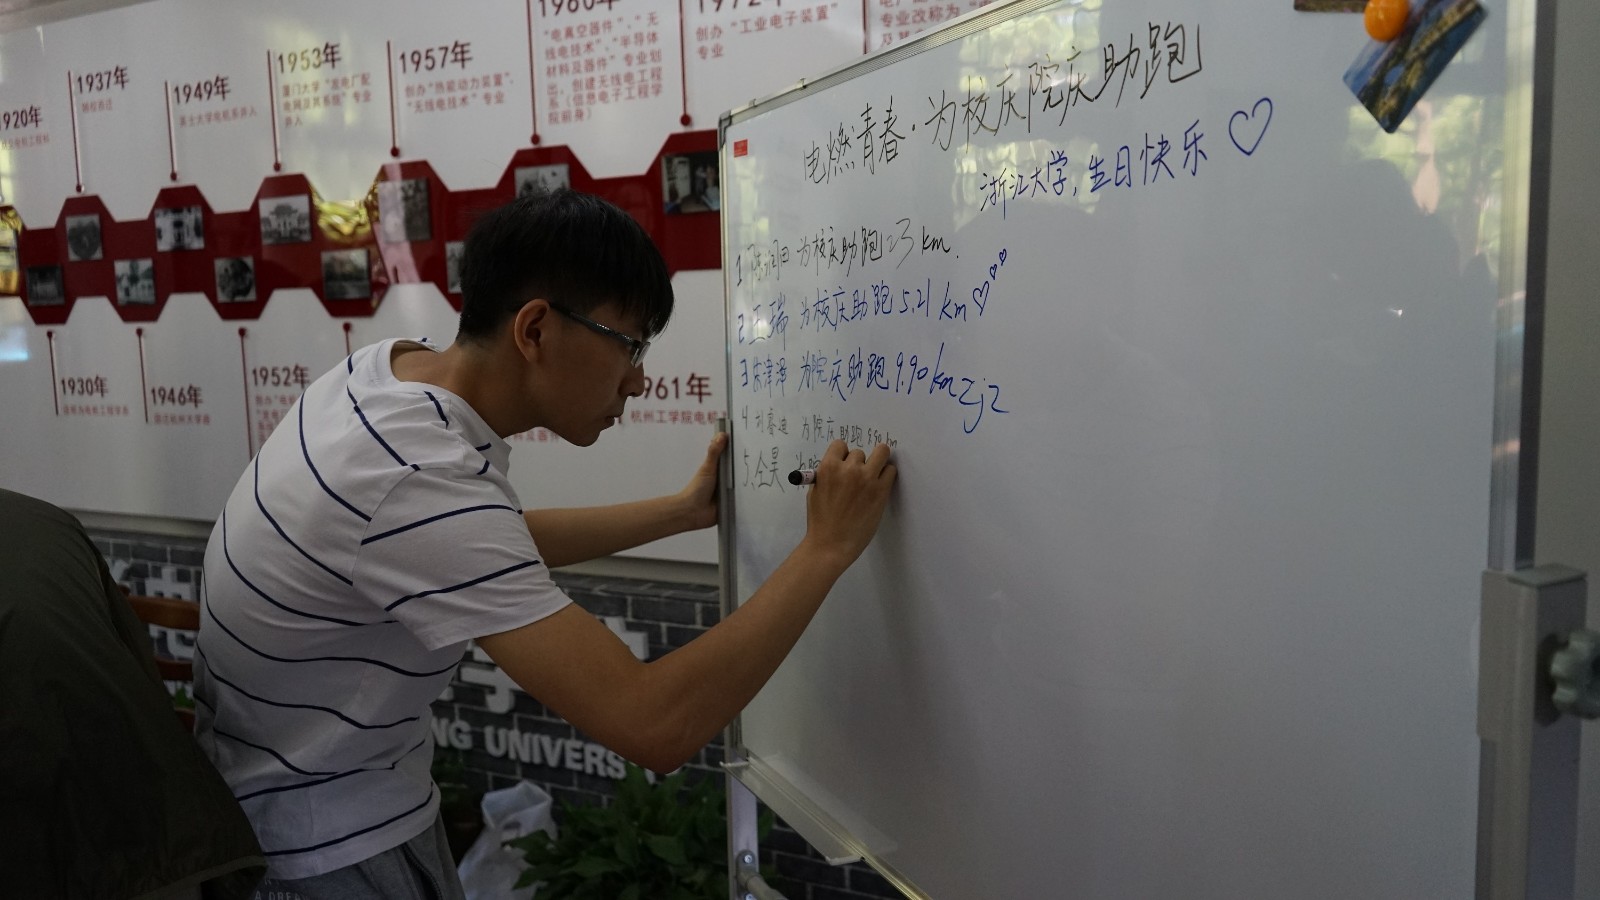 1920年
1937年
1949年
1953年
厦门大学“发电厂配
电网及其系统”专业
并入
1957年
创办“热能动力装置”、
“无线电技术”专业
1960年
“电真空器件”、“无
线电技术”、“半导体
材料及器件”专业划
出，创建无线电工程
系（信息电子工程学
院前身）
1972年
创办“工业电子装置”
专业
专业改称为
1930年
1946年
1952年
1961年
杭州工学院电机
NG UNIVERS
电燃青春·为校庆院庆助跑
浙江大学，生日快乐♡
1 陈润田 为校庆助跑 23 km.
2 王瑞 为校庆助跑 5.21 km♡♡♡
3 津泽 为院庆助跑 9.90 km zjz
4 刘 为院庆助跑 9.90 km
5. 全昊 为